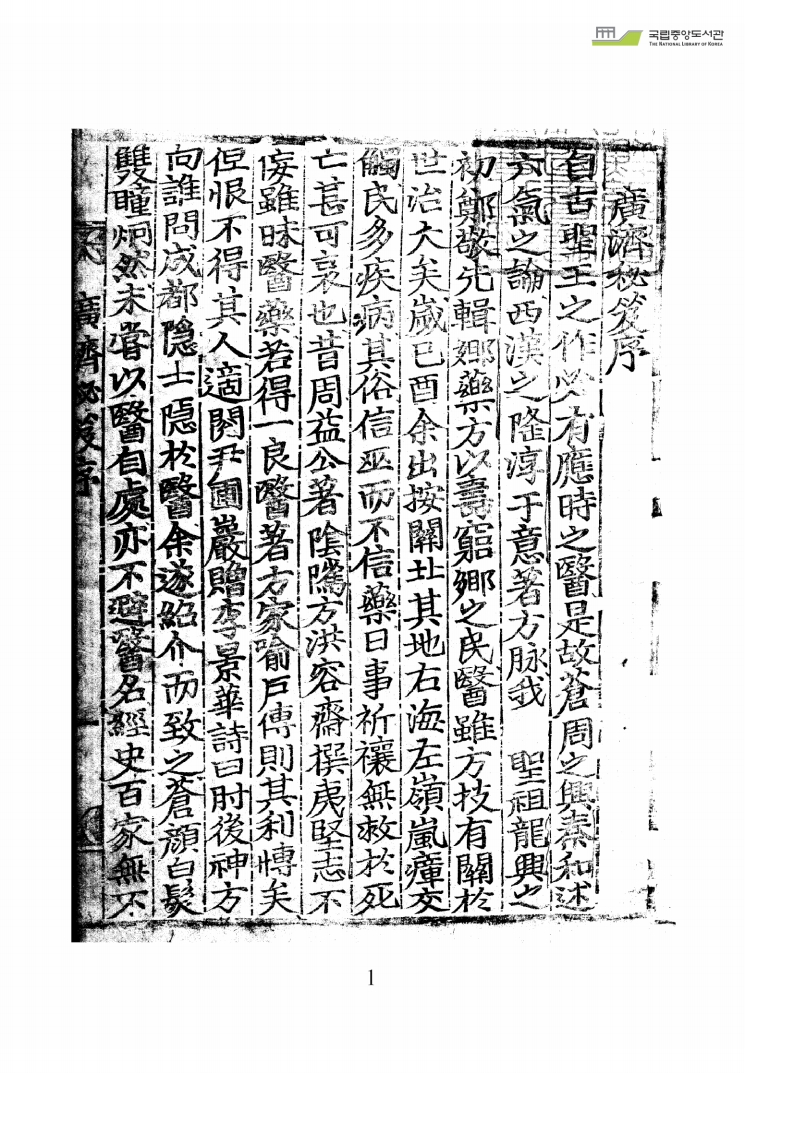 국립중앙도서관
THE NATIONAL LIBRARY OF KOREA
廣濟秘笈序
自古聖王之作必有應時之醫是故蒼周之興秦和述
六氣之論西漢之隆淳于意著方脉我 聖祖龍興之
初鄭敬先輯鄕藥方以壽窮鄕之民醫雖方技有關於
世治大矣歲己酉余出按關北其地右海左嶺嵐瘴交
觸民多疾病其俗信巫而不信藥日事祈禳無救於死
亡甚可哀也昔周益公著陰隲方洪容齋撰夷堅志不
侫雖昧醫藥若得一良醫著方家喻戶傳則其利博矣
但恨不得其人適閱尹圃巖贈李景華詩曰肘後神方
向誰問成都隱士隱於醫余遂紹介而致之蒼顔白髮
雙瞳炯然未嘗以醫自處亦不避醫名經史百家無不
廣濟秘笈序
1